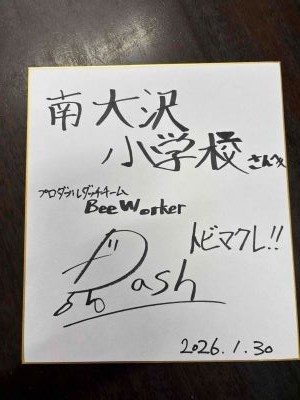 南大沢
小学校さんへ
プロダブルダッチチーム
Bee Worker
トビマクレ!!
Dash
2026.1.30